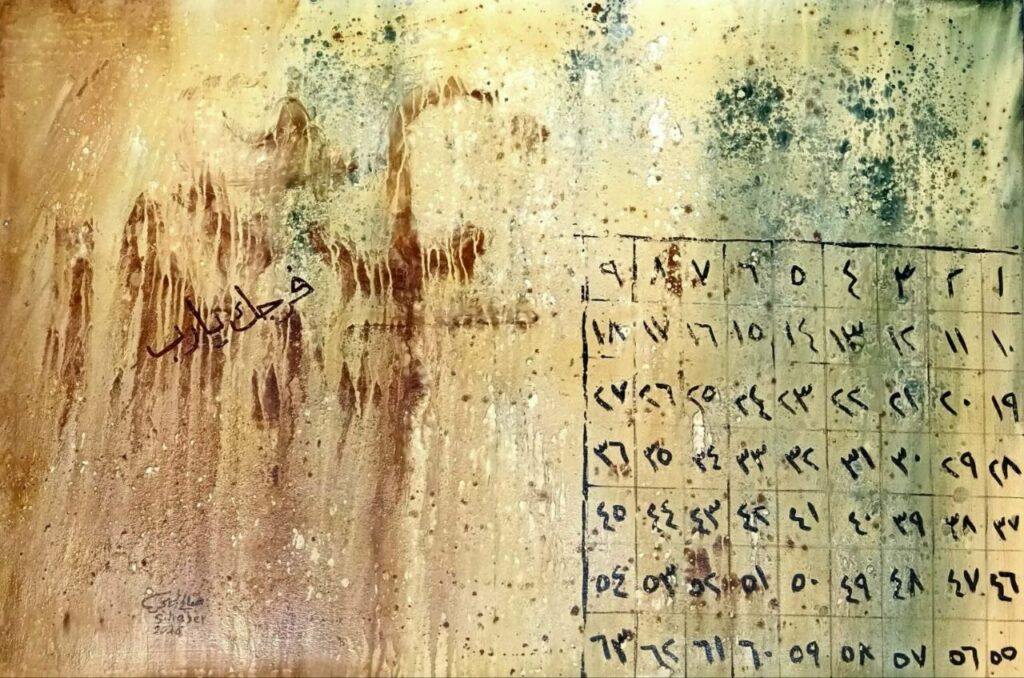 فرجك يا رب
١ ٢ ٣ ٤ ٥ ٦ ٧ ٨ ٩
١٠ ١١ ١٢ ١٣ ١٤ ١٥ ١٦ ١٧ ١٨
١٩ ٢٠ ٢١ ٢٢ ٢٣ ٢٤ ٢٥ ٢٦ ٢٧
٢٨ ٢٩ ٣٠ ٣١ ٣٢ ٣٣ ٣٤ ٣٥ ٣٦
٣٧ ٣٨ ٣٩ ٤٠ ٤١ ٤٢ ٤٣ ٤٤ ٤٥
٤٦ ٤٧ ٤٨ ٤٩ ٥٠ ٥١ ٥٢ ٥٣ ٥٤
٥٥ ٥٦ ٥٧ ٥٨ ٥٩ ٦٠ ٦١ ٦٢ ٦٣